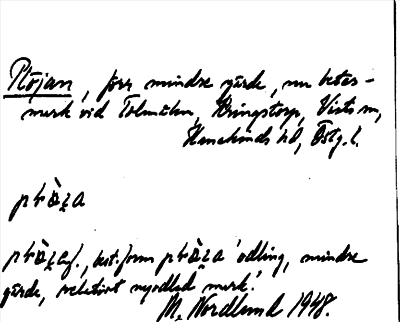 Plöjan, förr mindre gärde, nu betes-
mark vid Tolmålen, Bringstorp, Vists sn,
Hanekinds hd, Östg. l.
plö̀ɪa
f., best. form 'odling, mindre
gärde, relativt nyodlad mark.'
M. Nordlund 1948.